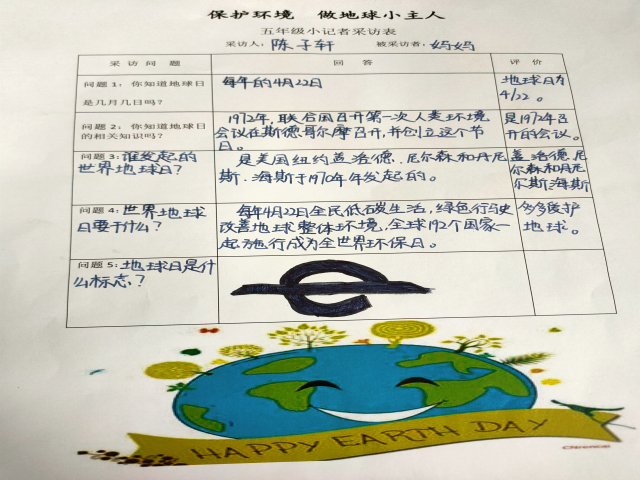 保护环境 做地球小主人
五年级小记者采访表
采访人：陈子轩 被采访者：妈妈
采访问题 回答 评价
问题1：你知道地球日
是几月几日吗？
每年的4月22日
地球日为
4/22。
问题2：你知道地球日
的相关知识吗？
1972年，联合国召开第一次人类环境
会议在斯德哥尔摩召开，并创立这个节
日。
是1972年召
开的会议。
问题3：谁发起的
世界地球日？
是美国纽约盖洛德．尼尔森和丹尼
斯．海斯于1970年年发起的。
盖洛德．尼
尔森和丹尼
尔斯海斯
问题4：世界地球
日要干什么？
每年4月22日全民低碳生活，绿色行
改善地球整体环境，全球192个国家一
起施行成为全世界环保日。
多多爱护
地球。
问题5：地球日是什
么标志？
HAPPY EARTH DAY